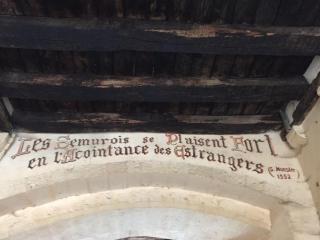 Les Semurois se Plaisent Fort
en l'Acointance des Estrangers
(S. Munster
1552